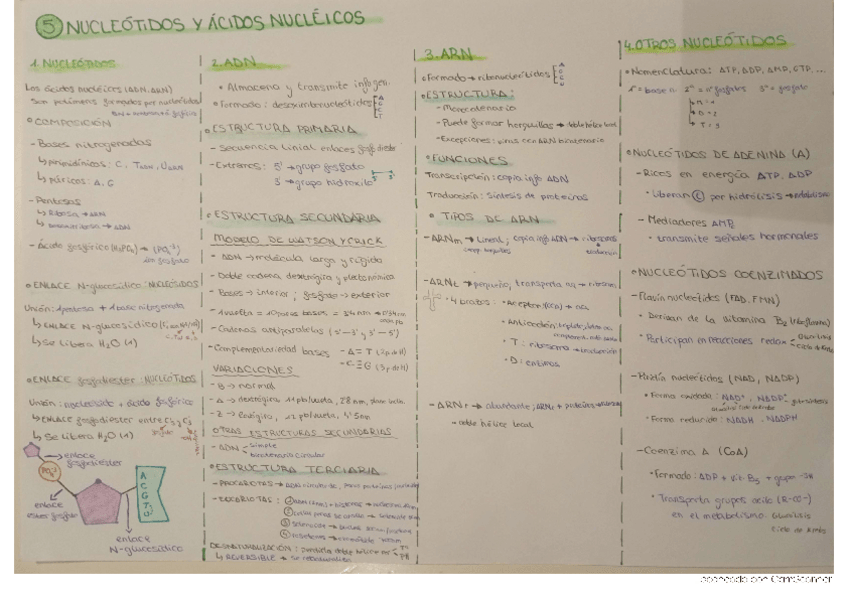 5 NUCLEÓTIDOS Y ÁCIDOS NUCLÉICOS
1. NUCLEÓTIDOS
Los ácidos nucléicos (ADN, ARN)
Son polímeros formados por nucleótidos
COMPOSICIÓN
- Bases nitrogenadas
↳ pirimidínicas: C, T(ADN), U(ARN)
↳ púricas: A, G
- Pentosas
↳ Ribosa → ARN
↳ Desoxirribosa → ADN
- Ácido fosfórico (H3PO4) → (PO4-3)
ion fosfato
ENLACE N-glucosídico: NUCLEÓSIDOS
Unión: 1 pentosa + 1 base nitrogenada
↳ ENLACE N-glucosídico
↳ Se libera H2O (1)
ENLACE fosfodiester: NUCLEÓTIDOS
Unión: nucleósido + ácido fosfórico
↳ ENLACE fosfodiester entre C5 y C3
↳ Se libera H2O (1)
enlace
fosfodiester
PO4-3
A
C
G
T
U
enlace
ester fosfato
enlace
N-glucosídico
2. ADN
• Almacena y transmite info gen.
• Formado: desoxirribonucleótidos
A
G
C
T
ESTRUCTURA PRIMARIA
- Secuencia linial enlaces fosfodiester
- Extremos: 5' → grupo fosfato
3' → grupo hidroxilo
ESTRUCTURA SECUNDARIA
MODELO DE WATSON Y CRICK
- ADN → molécula larga y rígida
- Doble cadena dextrógira y plectonémica
- Bases → interior; fosfato → exterior
- 1 vuelta = 10 pares bases = 3'4 nm
- Cadenas antiparalelas (5'-3' y 3'-5')
- Complementariedad bases
- A = T (2 p.d.H)
- C ≡ G (3 p.d.H)
VARIACIONES
- B → normal
- A → dextrógira, 11 pb/vuelta, 2'8 nm
- Z → levógira, 12 pb/vuelta, 4'5 nm
OTRAS ESTRUCTURAS SECUNDARIAS
- ADN
simple
bicatenario circular
ESTRUCTURA TERCIARIA
- PROCARIOTAS → ADN circular
- EUCARIOTAS:
1
2
3
4
DESNATURALIZACIÓN: perdida doble hélice
Tª
PH
↳ REVERSIBLE → se renaturaliza
3. ARN
Formado → ribonucleótidos
A
G
C
U
ESTRUCTURA:
- Monocatenario
- Puede formar horquillas → doble hélice local
- Excepciones: virus con ARN bicatenario
FUNCIONES
Transcripción: copia info ADN
Traducción: síntesis de proteínas
TIPOS DE ARN
- ARNm → Lineal; copia info ADN → ribosomas
- ARNt → pequeño, transporta aa → ribosoma
• 4 brazos:
• Aceptor (CCA) → aa
• Anticodón: triplete bases
• T: ribosoma → traducción
• D: enzimas
- ARNr → abundante; ARNr + proteínas → ribosomas
→ doble hélice local
4. OTROS NUCLEÓTIDOS
Nomenclatura: ATP, ADP, AMP, CTP, ...
1º = base n. 2º = nº fosfatos 3º = fosfato
M = 1
D = 2
T = 3
NUCLEÓTIDOS DE ADENINA (A)
- Ricos en energía ATP, ADP
• Liberan E por hidrólisis → metabolismo
- Mediadores AMP
• transmite señales hormonales
NUCLEÓTIDOS COENZIMADOS
- Flavín nucleótidos (FAD, FMN)
• Derivan de la vitamina B2 (riboflavina)
• Participan en reacciones redox
- Piridín nucleótidos (NAD, NADP)
• Forma oxidada: NAD+, NADP+
• Forma reducida: NADH, NADPH
- Coenzima A (CoA)
• Formado: ADP + Vit. B5 + grupo -SH
• Transporta grupos acilo (R-CO-)
en el metabolismo. Glucólisis
Ciclo de Krebs
Scanned with CamScanner